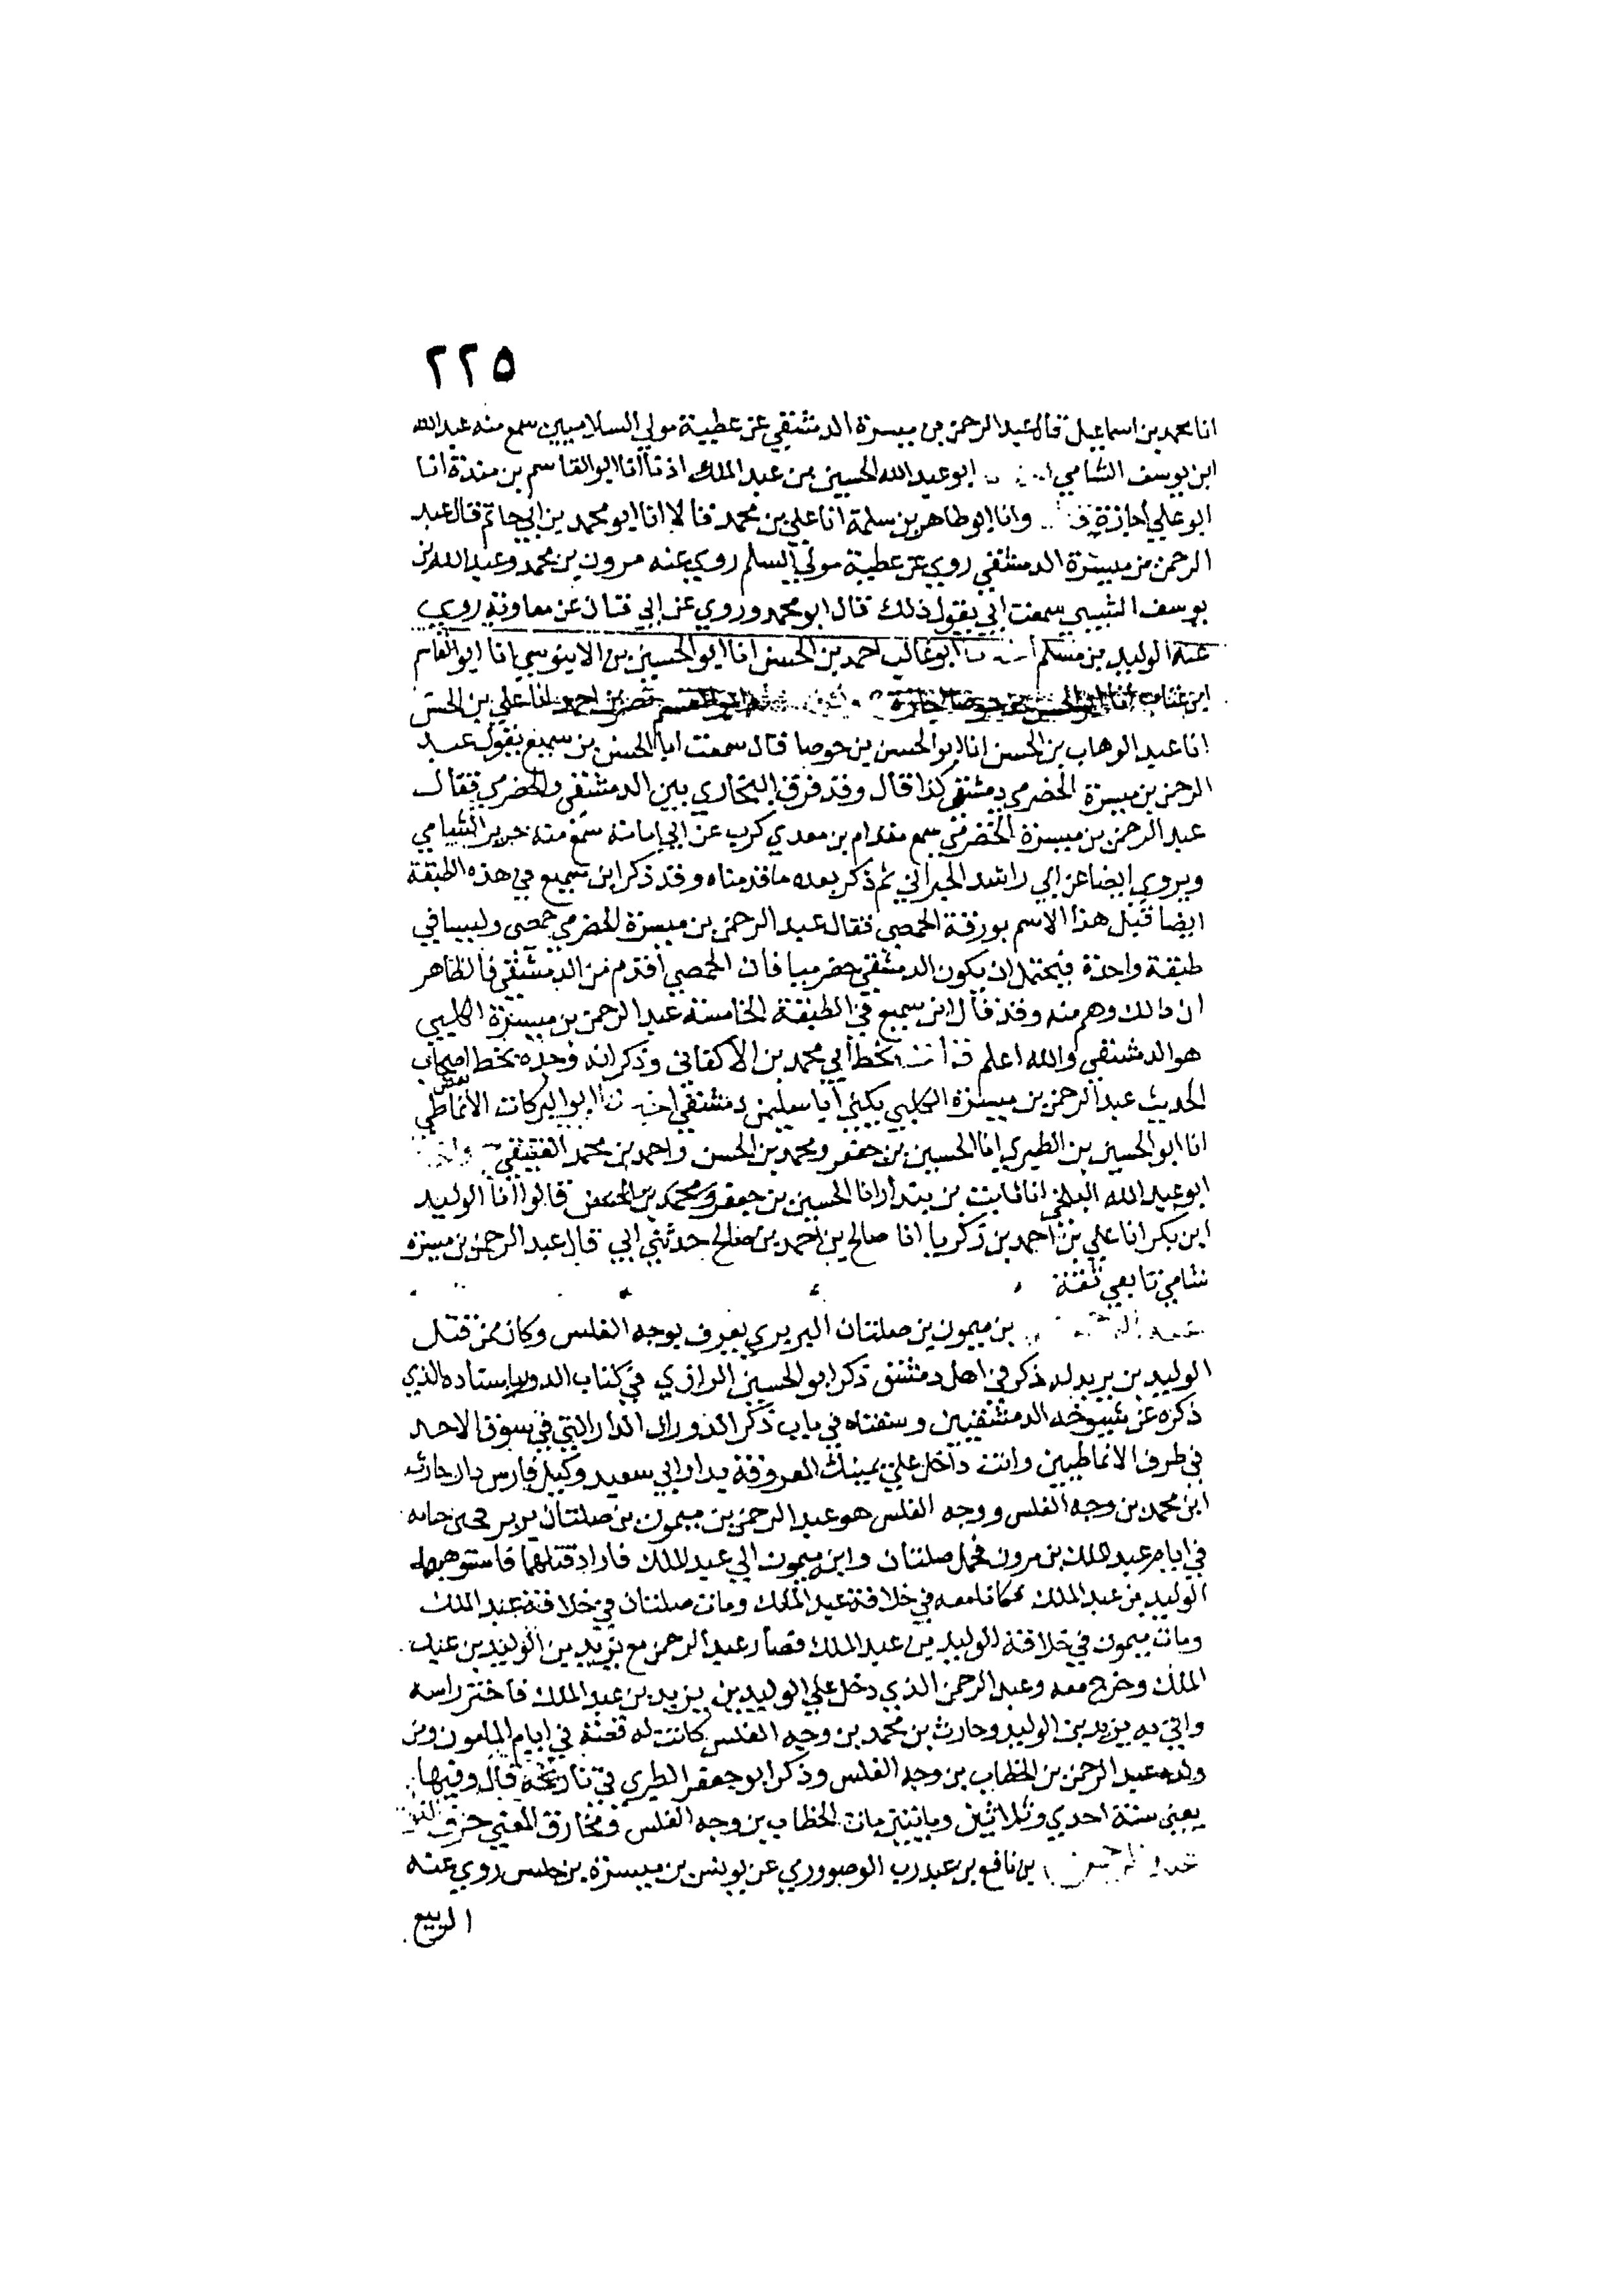 ٢٢٥
انا محمد بن اسماعيل قال عبد الرحمن بن ميسرة الدمشقي عن عطية مولي السلاميين سمع منه عبد الله
ابن يوسف الشامي ابو عبد الله الحسين بن عبد الملك اذنا انا ابو القاسم بن مندة انا
ابو علي اجازة وانا ابو طاهر بن سلمة انا علي بن محمد قالا انا ابو محمد بن ابي حاتم قال عبد
الرحمن بن ميسرة الدمشقي روي عن عطية مولي السلم روي عنه مرون بن محمد وعبد الله بن
يوسف التنيسي سمعت ابي يقول ذلك قال ابو محمد وروي عن ابي قتان عن معاوية روي
عنه الوليد بن مسلم ابو غالب احمد بن الحسن انا ابو الحسين بن الابنوسي انا ابو القاسم
ابن عتاب انا ابو الحسن بن جوصا اجازة ابو القسم نصر بن احمد انا علي بن الحسن
انا عبد الوهاب بن الحسن انا ابو الحسن بن جوصا قال سمعت ابا الحسن بن سميع يقول عبد
الرحمن بن ميسرة الحضرمي دمشقي كذا قال وقد فرق البخاري بين الدمشقي والحضرمي فقال
عبد الرحمن بن ميسرة الحضرمي سمع مقدام بن معدي كرب عن ابي امامة سمع منه حرير الشامي
ويروي ايضا عن ابي راشد الحبراني ثم ذكر بعده ما قدمناه وقد ذكر ابن سميع في هذه الطبقة
ايضا قبل هذا الاسم بورقة الحمصي فقال عبد الرحمن بن ميسرة الحضرمي حمصي وليسا في
طبقة واحدة فيحتمل ان يكون الدمشقي حضرميا فان الحمصي اقدم من الدمشقي فالظاهر
ان ذالك وهم منه وقد قال ابن سميع في الطبقة الخامسة عبد الرحمن بن ميسرة الكلبي
هو الدمشقي والله اعلم قرات بخط ابي محمد بن الاكفاني وذكر انه وجده بخط بعض اصحاب
الحديث عبد الرحمن بن ميسرة الكلبي يكني ابا سليمن دمشقي ابو البركات الانماطي
انا ابو الحسين بن الطيري انا الحسين بن جعفر ومحمد بن الحسن واحمد بن محمد العتيقي
ابو عبد الله البلخي انا ثابت بن بندار انا الحسين بن جعفر ومحمد بن الحسن قالوا انا الوليد
ابن بكر انا علي بن احمد بن زكريا انا صالح بن احمد بن صالح حدثني ابي قال عبد الرحمن بن ميسرة
شامي تابعي ثقة
بن ميمون بن صلتان البربري يعرف بوجه الفلس وكان ممن قتل
الوليد بن يزيد له ذكر في اهل دمشق ذكر ابو الحسين الرازي في كتاب الدور باستاده الذي
ذكره عن شيوخه الدمشقيين وسقناه في باب ذكر الدور ان الدار التي في سوق الاحد
في طرف الانماطيين وانت داخل علي يمينك المعروفة بدار ابي سعيد وكيل فارس دار حارث
ابن محمد بن وجه الفلس ووجه الفلس هو عبد الرحمن بن ميمون بن صلتان بربر
في ايام عبد الملك بن مرون فحمل صلتان وابنه ميمون الي عبد الملك فاراد قتلهما فاستوهبهما
الوليد بن عبد الملك فكانا معه في خلافة عبد الملك ومات صلتان في خلافة عبد الملك
ومات ميمون في خلافة الوليد بن عبد الملك فصار عبد الرحمن مع يزيد بن الوليد بن عبد
الملك وخرج معه وعبد الرحمن الذي دخل علي الوليد بن يزيد بن عبد الملك فاختز راسه
واتي به يزيد بن الوليد وحارث بن محمد بن وجه الفلس كانت له قصة في ايام المامون ومن
ولده عبد الرحمن بن الخطاب بن وجه الفلس وذكر ابو جعفر الطبري في تاريخه قال وفيها
يعني سنة احدي وثلاثين وماتين مات الخطاب بن وجه الفلس ومخارق المغني حرف
بن نافع بن عبد رب عن يونس بن ميسرة بن حلبس روي عنه
الربيع